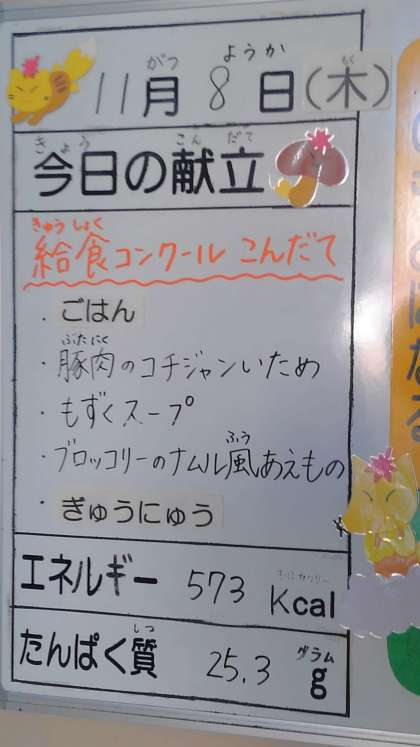 がつ ようか もく
11月 8日(木)
きょう こんだて
今日の献立
きゅうしょく
給食コンクール こんだて
・ごはん
ぶたにく
・豚肉のコチジャンいため
・もずくスープ
ふう
・ブロッコリーのナムル風あえもの
・ぎゅうにゅう
キロカロリー
エネルギー 573 Kcal
しつ グラム
たんぱく質 25.3 g